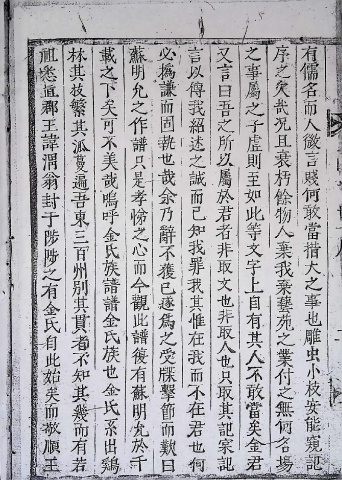 有儒名而人微言賤何敢當措大之事也雕虫小技安能窺記
序之矣哉况且衰朽餘物人棄我棄藝苑之業付之無何名塲
之事屬之子虛則至如此等文字上自有其人不敢當矣金君
又言曰吾之所以屬於君者非取文也非取人也只取其記宲
言以得我紹述之誠而已知我罪我其惟在我而不在君也何
必撝謙而固執也哉余乃辭不獲已遂爲之受牒擊節而歎曰
蘇明允之作譜只是孝悌之心而今觀此譜復有蘇明允於千
載之下矣可不美哉嗚呼金氏族譜譜金氏族也金氏系出鷄
林其枝繁其派蔓遍吾東三百州別其貫者不知其幾而有若
祖悉直郡王諱渭翁封于陟陟之有金氏自此始矣而敬順王